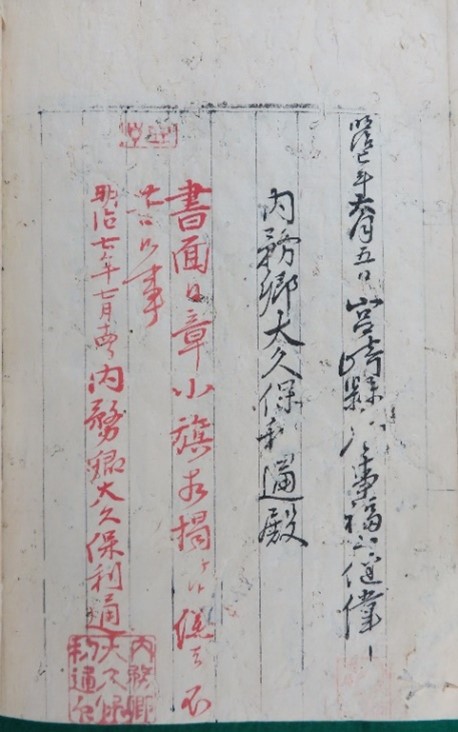 明治七年六月五日 宮崎縣參事福山健偉
内務卿大久保利通殿
書面日章小旗相掲候儀不
苦候事
明治七年七月 内務卿大久保利通
内務卿
大久保
利通印